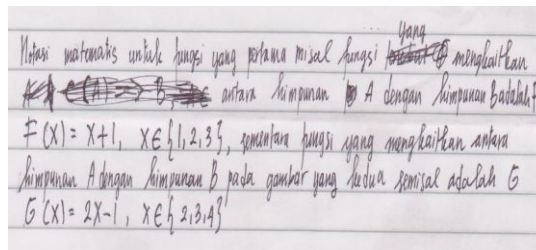 yang
Notasi matematis untuk fungsi yang pertama misal fungsi mengkaitkan
antara himpunan A dengan himpunan B adalah F
F(x) = x+1, x∈{1,2,3}, sementara fungsi yang mengkaitkan antara
himpunan A dengan himpunan B pada gambar yang kedua semisal adalah G
G(x) = 2x-1, x∈{2,3,4}